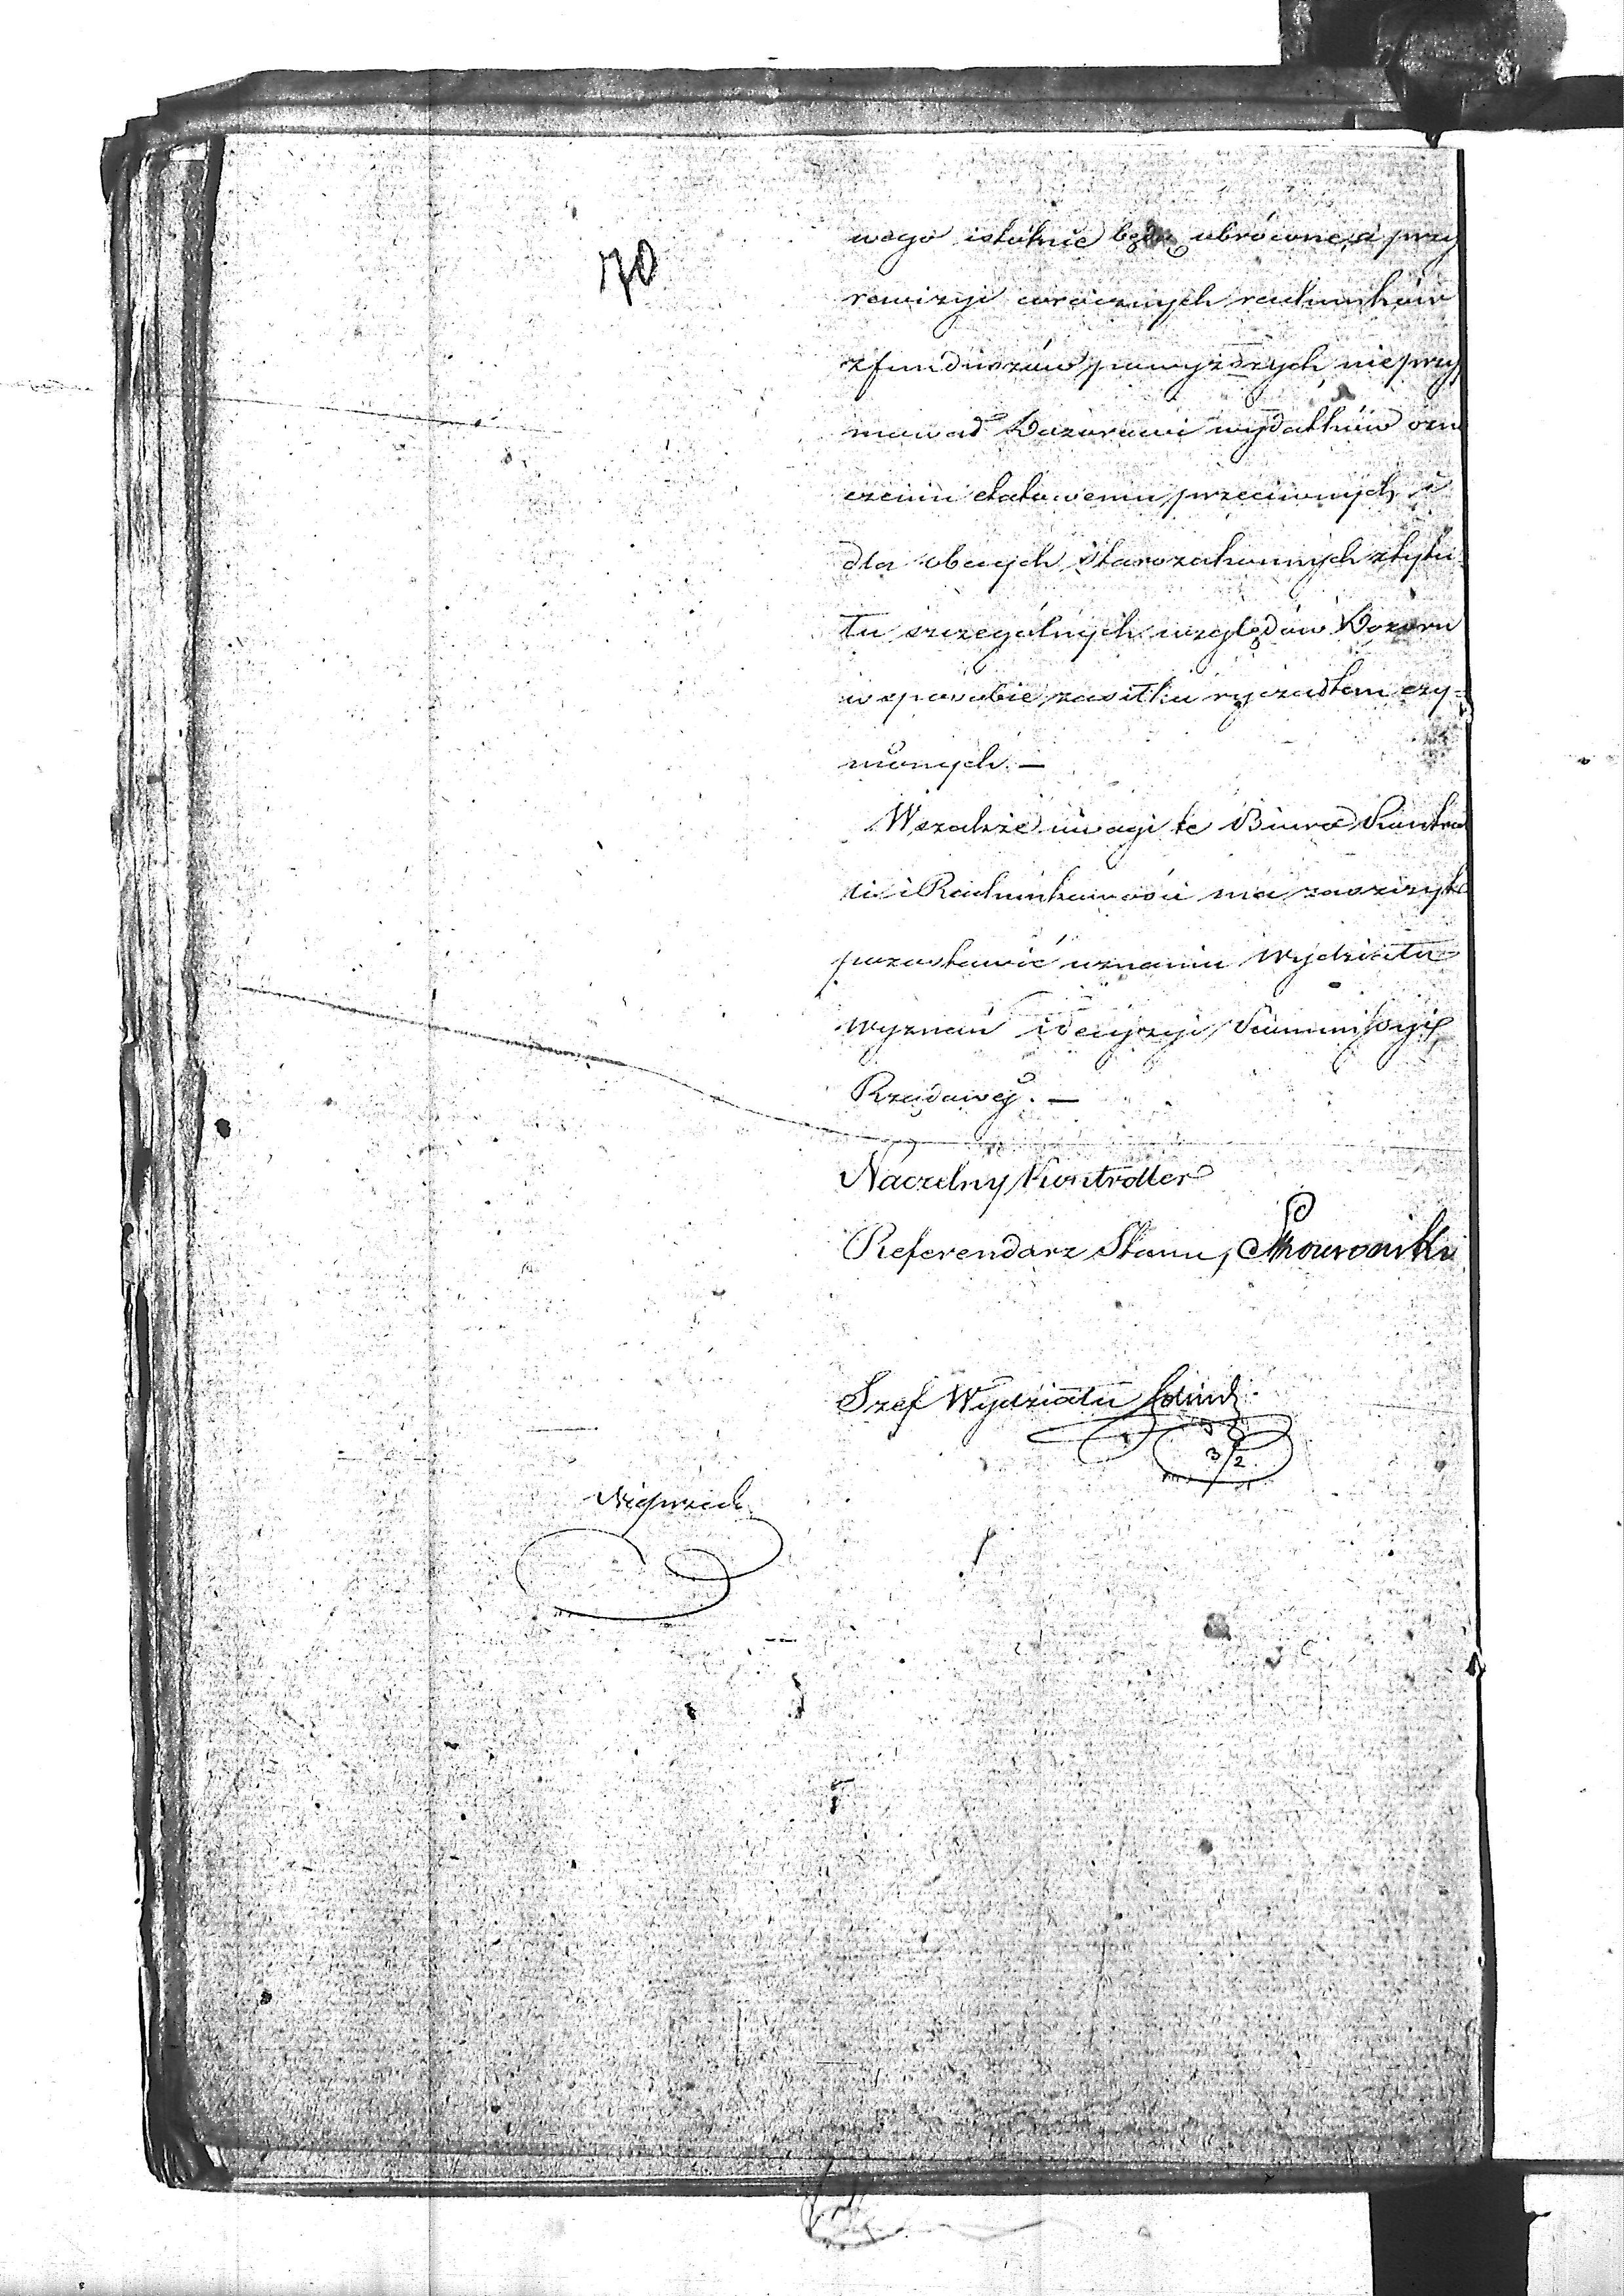 70
wego istotnie będą obrócone, a przy
rewizyi corocznych rachunków
z funduszów powyższych nie przy
mować Dozorowi wydatków ozna
czeniu etatowemu przeciwnych, i
dla obcych starozakonnych z tytu
łu szczególnych względów Dozoru
w sposobie zasiłku ryczałtem czy=
nionych. —
Wszakże uwagi te Biuro Kontro
li i Rachunkowości ma zaszczyt
pozostawić uznaniu Wydziału
Wyznań i decyzyi Kommissyi
Rządowej. —
Naczelny Kontroller
Referendarz Stanu, Skowroński
Szef Wydziału
3/2